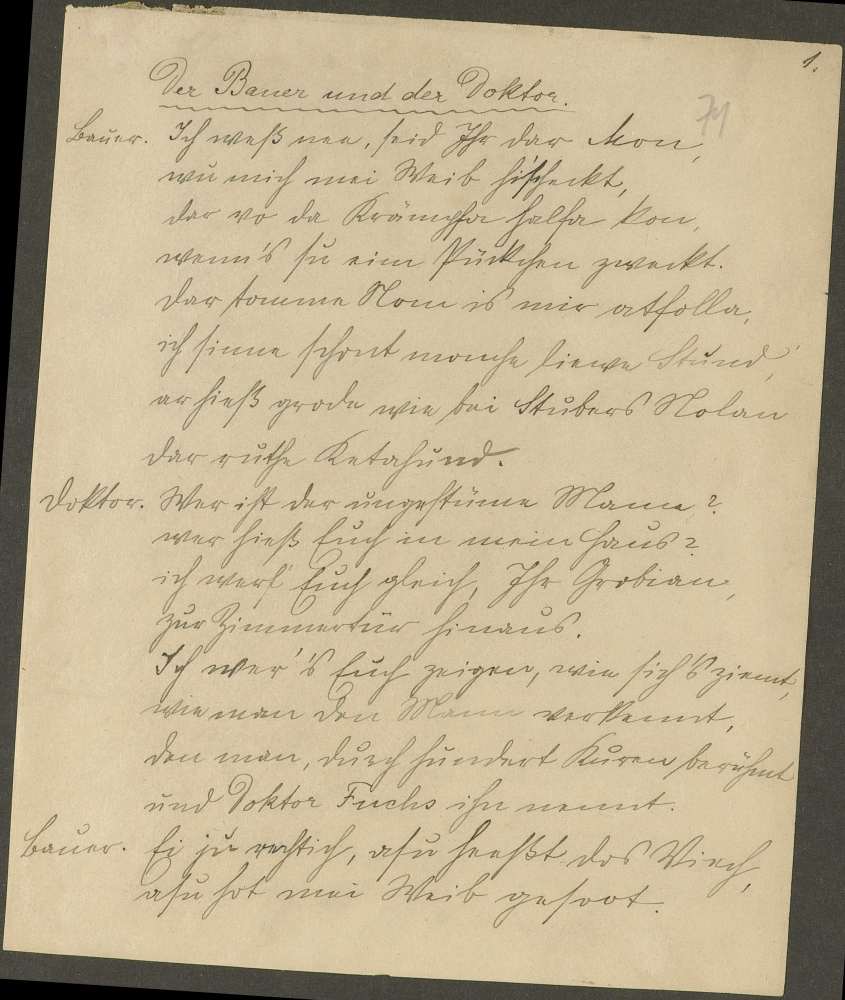 1.
Der Bauer und der Doktor.
74
Bauer. Ich weß nee, seid Ihr dar Mon,
wu mich mei Weib hi'scheckt,
dar vo da Krämpfa halfa kon,
wenn's su eim Pückchen zweckt.
Dar tomme Nom is mir atfolla,
ich sinne schont monche liewe Stund,
ar hieß grode wie bei Stubers Nolan
dar ruthe Ketahund.
Doktor. Wer ist der ungestüme Mann?
wer hieß Euch in mein Haus?
ich werf Euch gleich, Ihr Grobian,
zur Zimmertür hinaus.
Ich wer's Euch zeigen, wie sich's ziemt,
wie man den Mann verkennt,
den man, durch hundert Kuren berühmt
und Doktor Fuchs ihn nennt.
Bauer. Ei ju rechtich, asu heeßt dos Viech,
asu hot mei Weib gesoot.